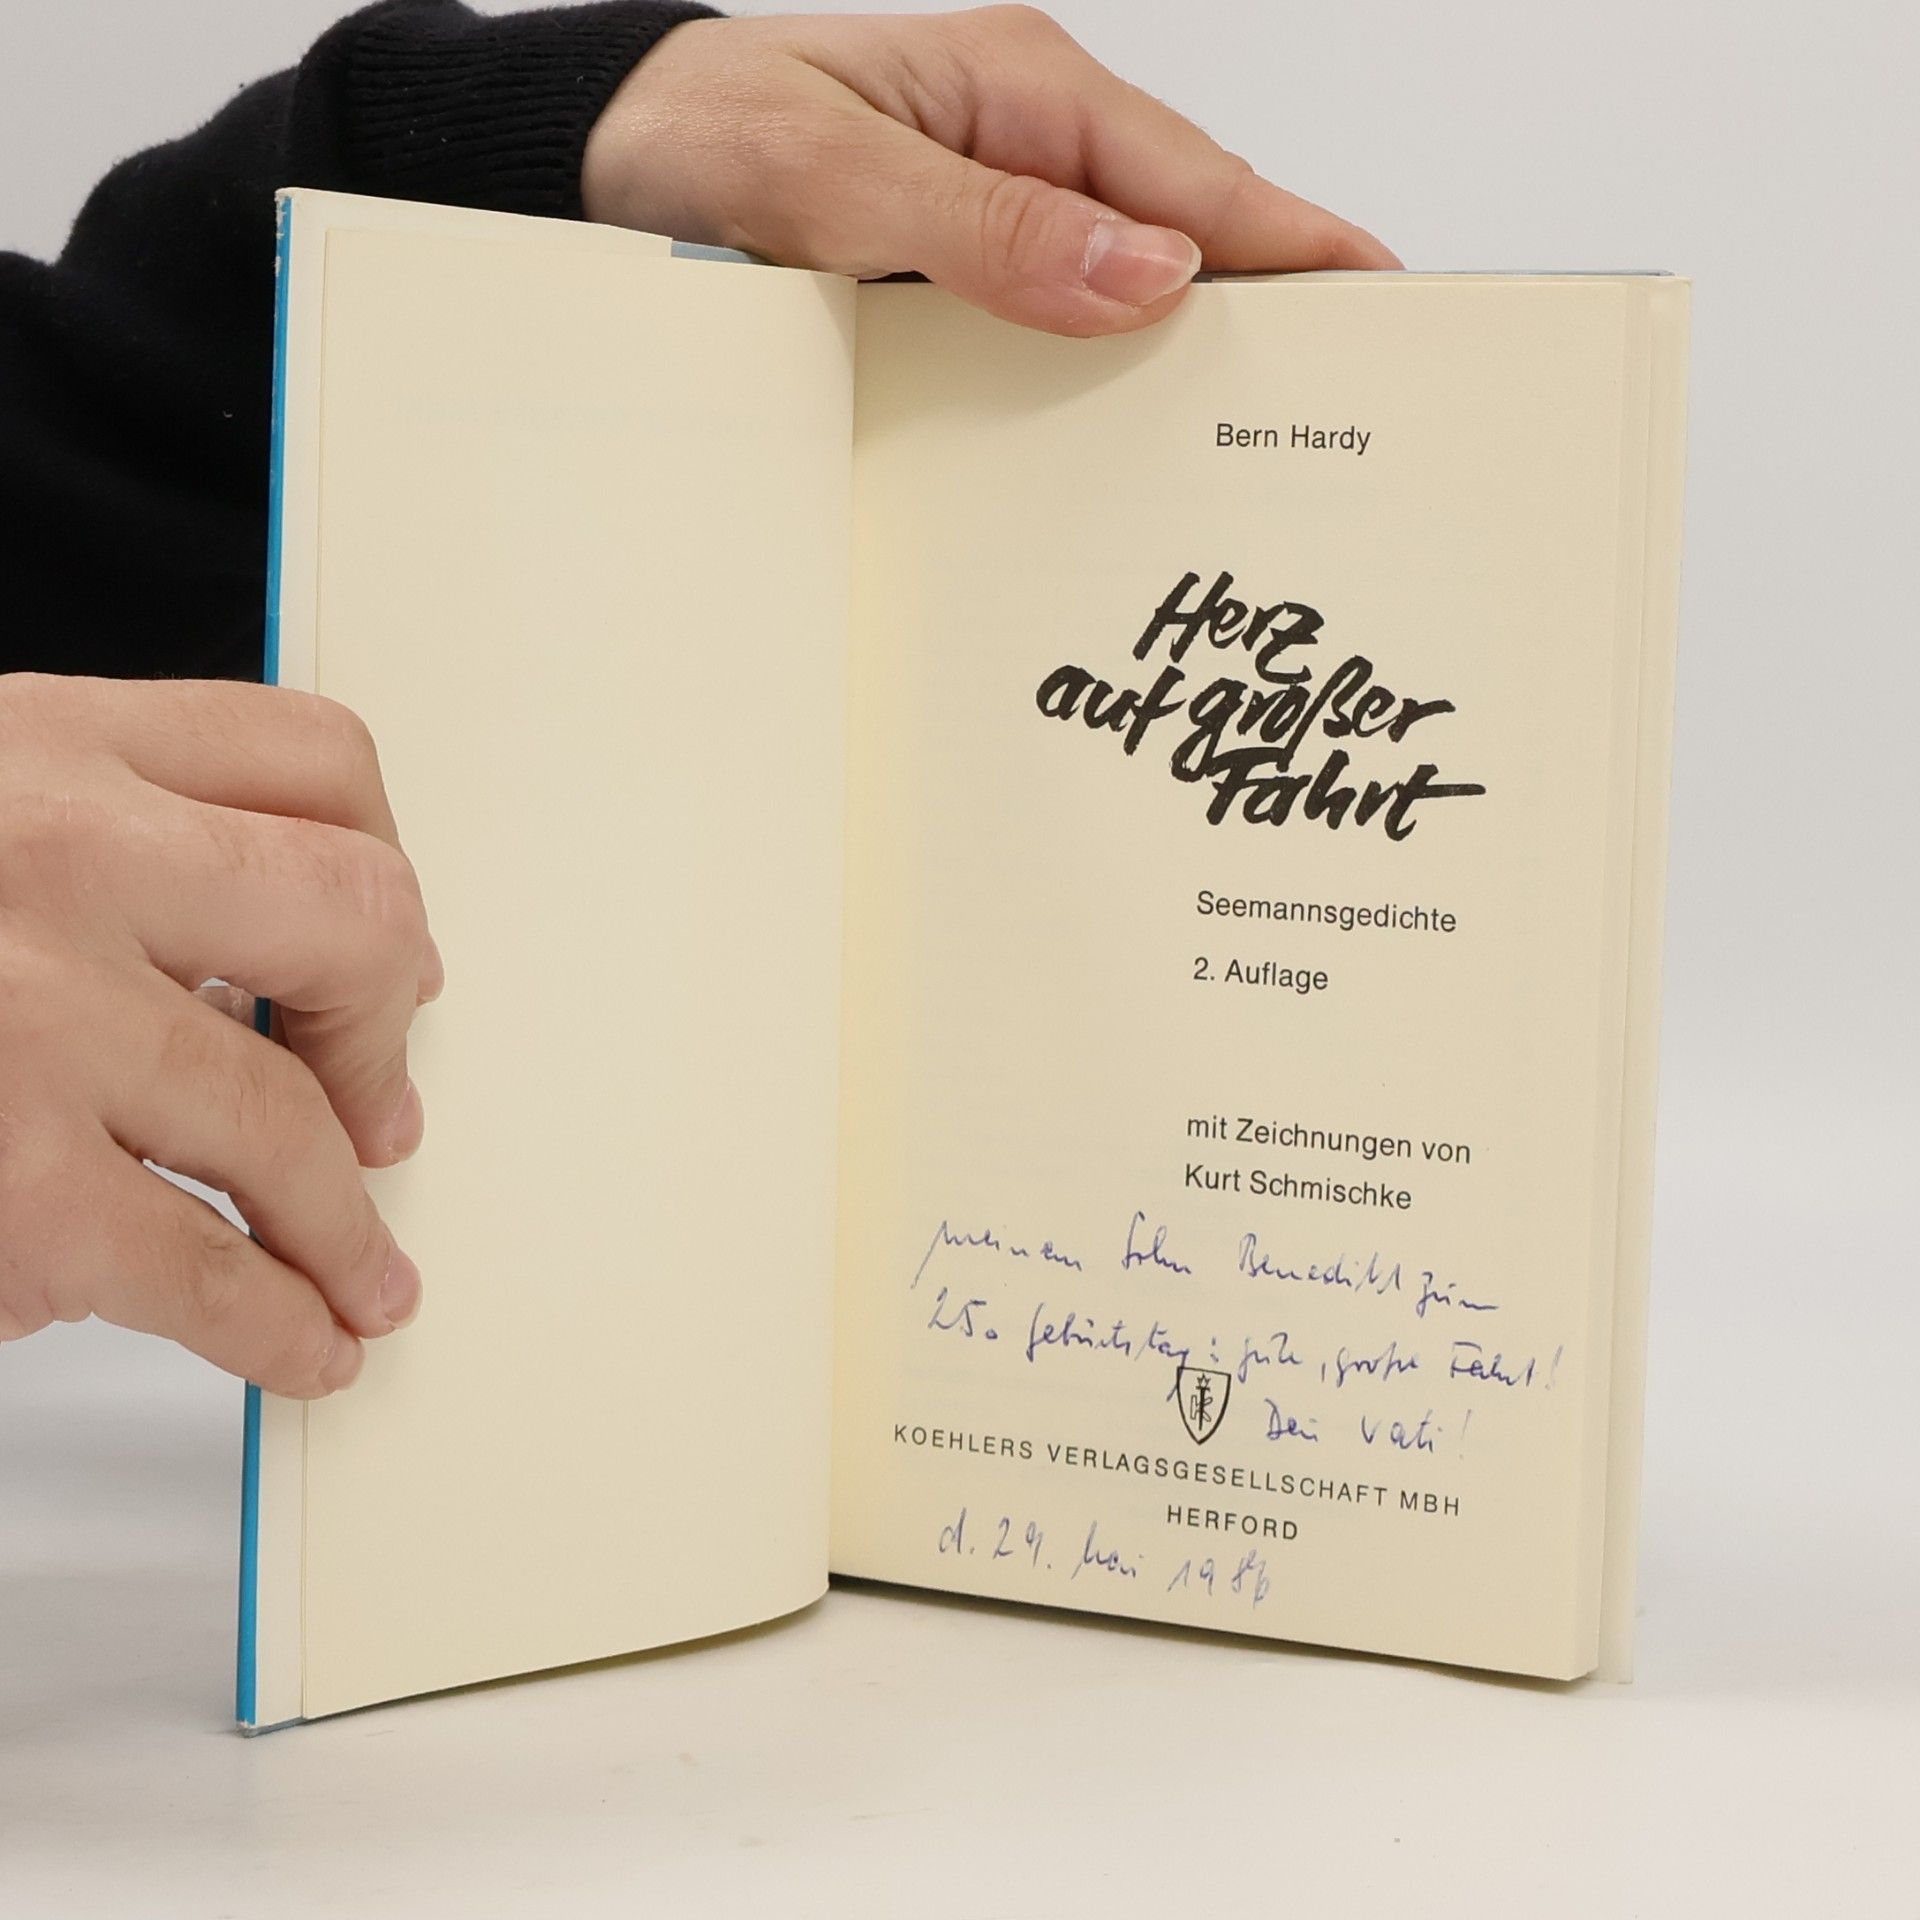 Bern Hardy
Herz
auf großer
Fahrt
Seemannsgedichte
2. Auflage
mit Zeichnungen von
Kurt Schmischke
meinem Sohn Benedikt zum
25. Geburtstag: gute, große Fahrt!
Dein Vati!
KOEHLERS VERLAGSGESELLSCHAFT MBH
HERFORD
d. 29. Mai 1986